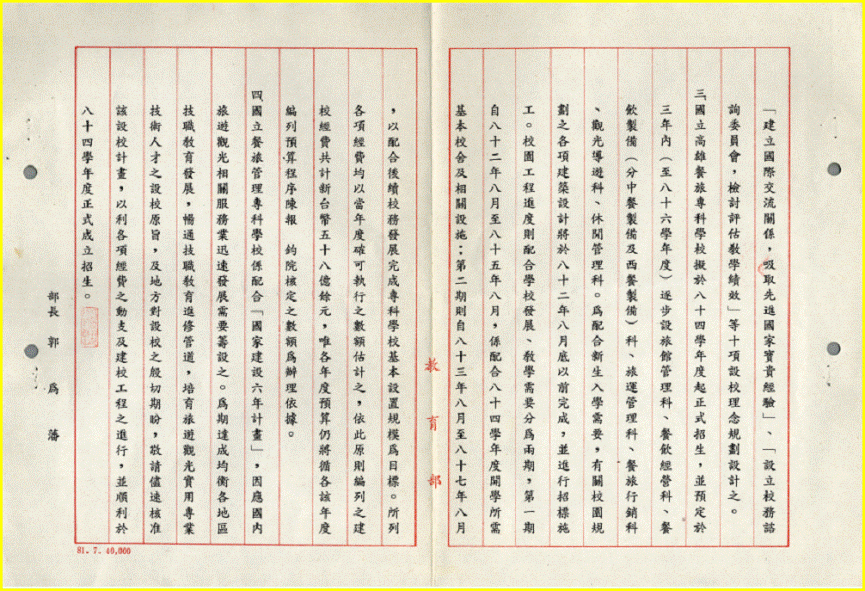 「建立國際交流關係，吸取先進國家寶貴經驗」、「設立校務諮
詢委員會，檢討評估教學績效」等十項設校理念規劃設計之。
三、國立高雄餐旅專科學校擬於八十四學年度起正式招生，並預定於
三年內（至八十六學年度）逐步設旅館管理科、餐飲經營科、餐
飲製備（分中餐製備及西餐製備）科、旅運管理科、餐旅行銷科
、觀光導遊科、休閒管理科。為配合新生入學需要，有關校園規
劃之各項建築設計將於八十二年八月底以前完成，並進行招標施
工。校園工程進度則配合學校發展、教學需要分為兩期，第一期
自八十二年八月至八十五年八月，係配合八十四學年度開學所需
基本校舍及相關設施；第二期則自八十三年八月至八十七年八月
教育部
，以配合後續校務發展完成專科學校基本設置規模為目標。所列
各項經費均以當年度確可執行之數額估計之，依此原則編列之建
校經費共計新台幣五十八億餘元，唯各年度預算仍將循各該年度
編列預算程序陳報　鈞院核定之數額為辦理依據。
四、國立餐旅管理專科學校係配合「國家建設六年計畫」，因應國內
旅遊觀光相關服務業迅速發展需要籌設之。為期達成均衡各地區
技職教育發展，暢通技職教育進修管道，培育旅遊觀光實用專業
技術人才之設校原旨，及地方對設校之殷切期盼，敬請儘速核准
該設校計畫，以利各項經費之動支及建校工程之進行，並順利於
八十四學年度正式成立招生。
部長 郭 為 藩
81. 7. 40,000